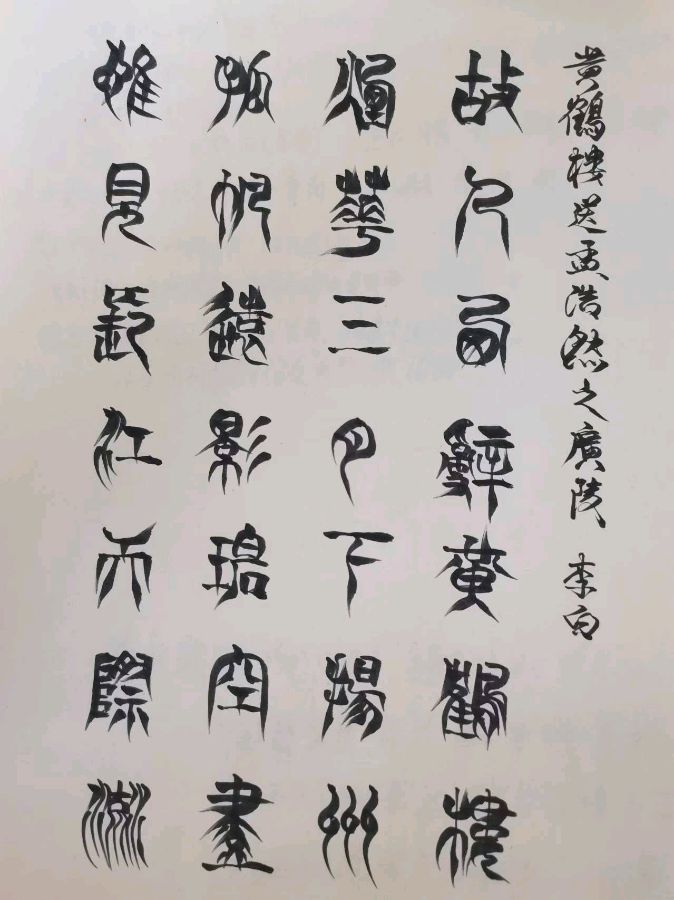 黄鶴樓送孟浩然之廣陵 李白
故人西辭黄鶴樓
煙華三月下揚州
孤帆遠影碧空盡
惟見長江天際流